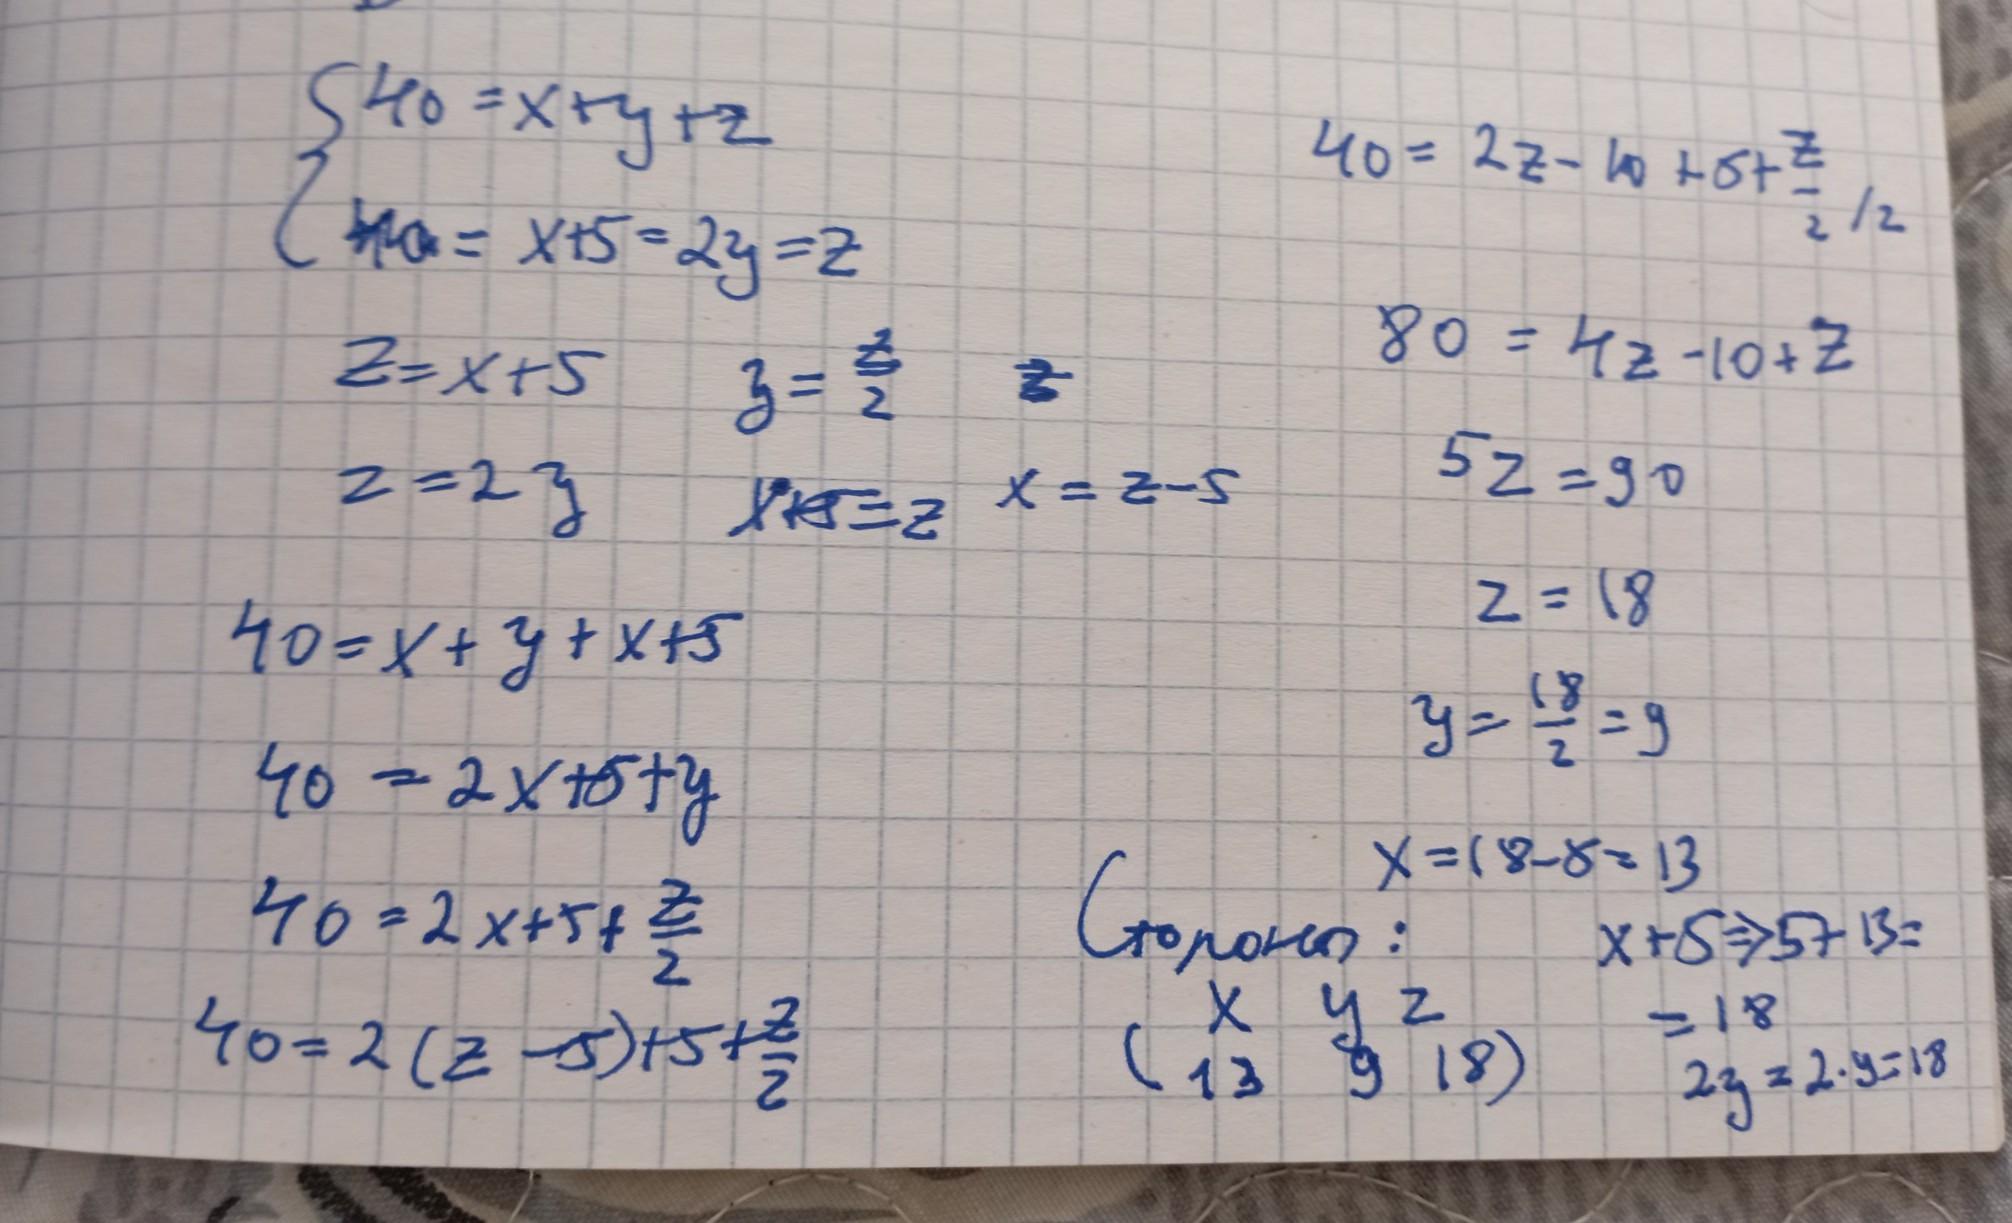 40 = x+y+z
= x+5 = 2y = z
z = x+5 y = z/2 z
z = 2y x+5 = z x = z-5
40 = x + y + x+5
40 = 2x+5+y
40 = 2x+5+z/2
40 = 2(z-5)+5+z/2
40 = 2z - 10 + 5 + z/2 /2
80 = 4z - 10 + z
5z = 90
z = 18
y = 18/2 = 9
x = 18-5 = 13
Стороны: x+5 ⇒ 5+13 =
x y z = 18
(13 9 18) 2y = 2·9 = 18